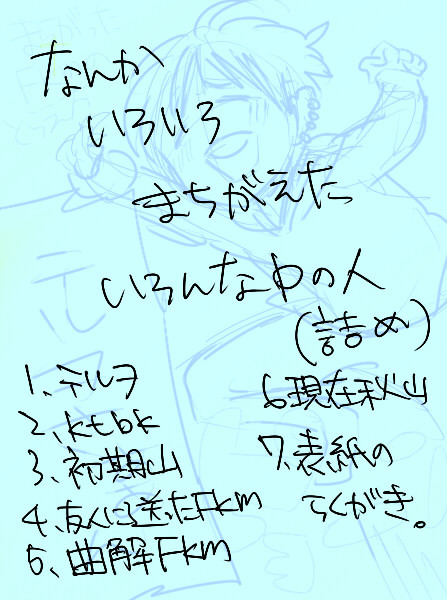 なんか
いろいろ
まちがえた
いろんな中の人
(詰め)
1、テルヲ
2、ktbk
3、初期山
4、友人に送ったFkm
5、曲解Fkm
6、現在秋山
7、表紙の
らくがき。